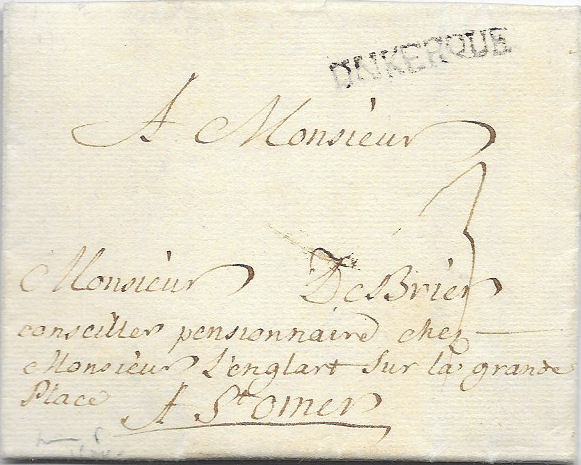 DNKERQUE
A Monsieur
3
Monsieur DeBrier
conseiller pensionnaire chez
Monsieur L'englart sur la grande
Place A St omer